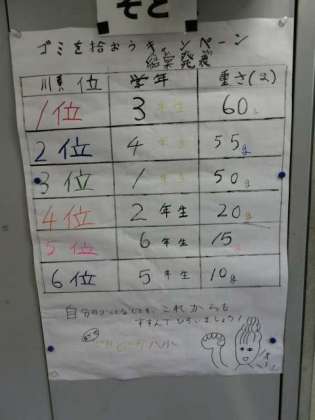 そと
ゴミを拾おうキャンペーン
結果発表
順位 学年 重さ(g)
1位 3年生 60g
2位 4年生 55g
3位 1年生 50g
4位 2年生 20g
5位 6年生 15g
6位 5年生 10g
これからも
すすんでひろいましょう!